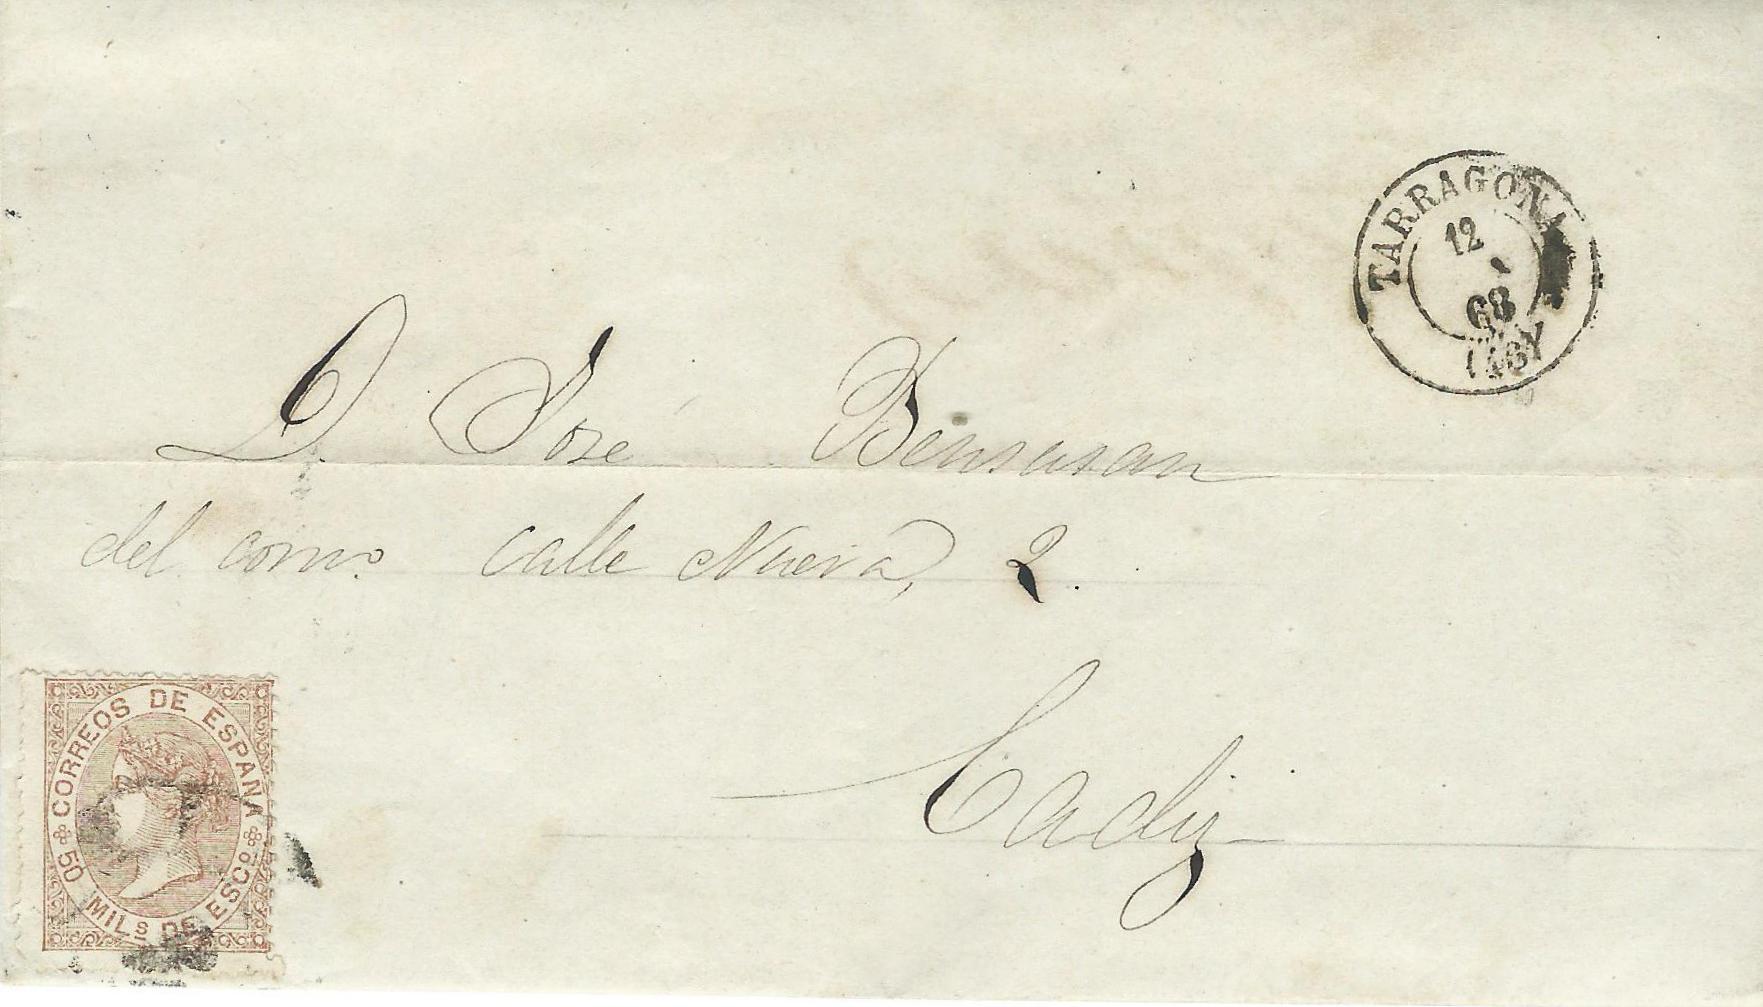 TARRAGONA
12
68
D. José Bensusan
del com.o calle Nueva, 2.
Cadiz
CORREOS DE ESPAÑA
50 MILs DE ESCo